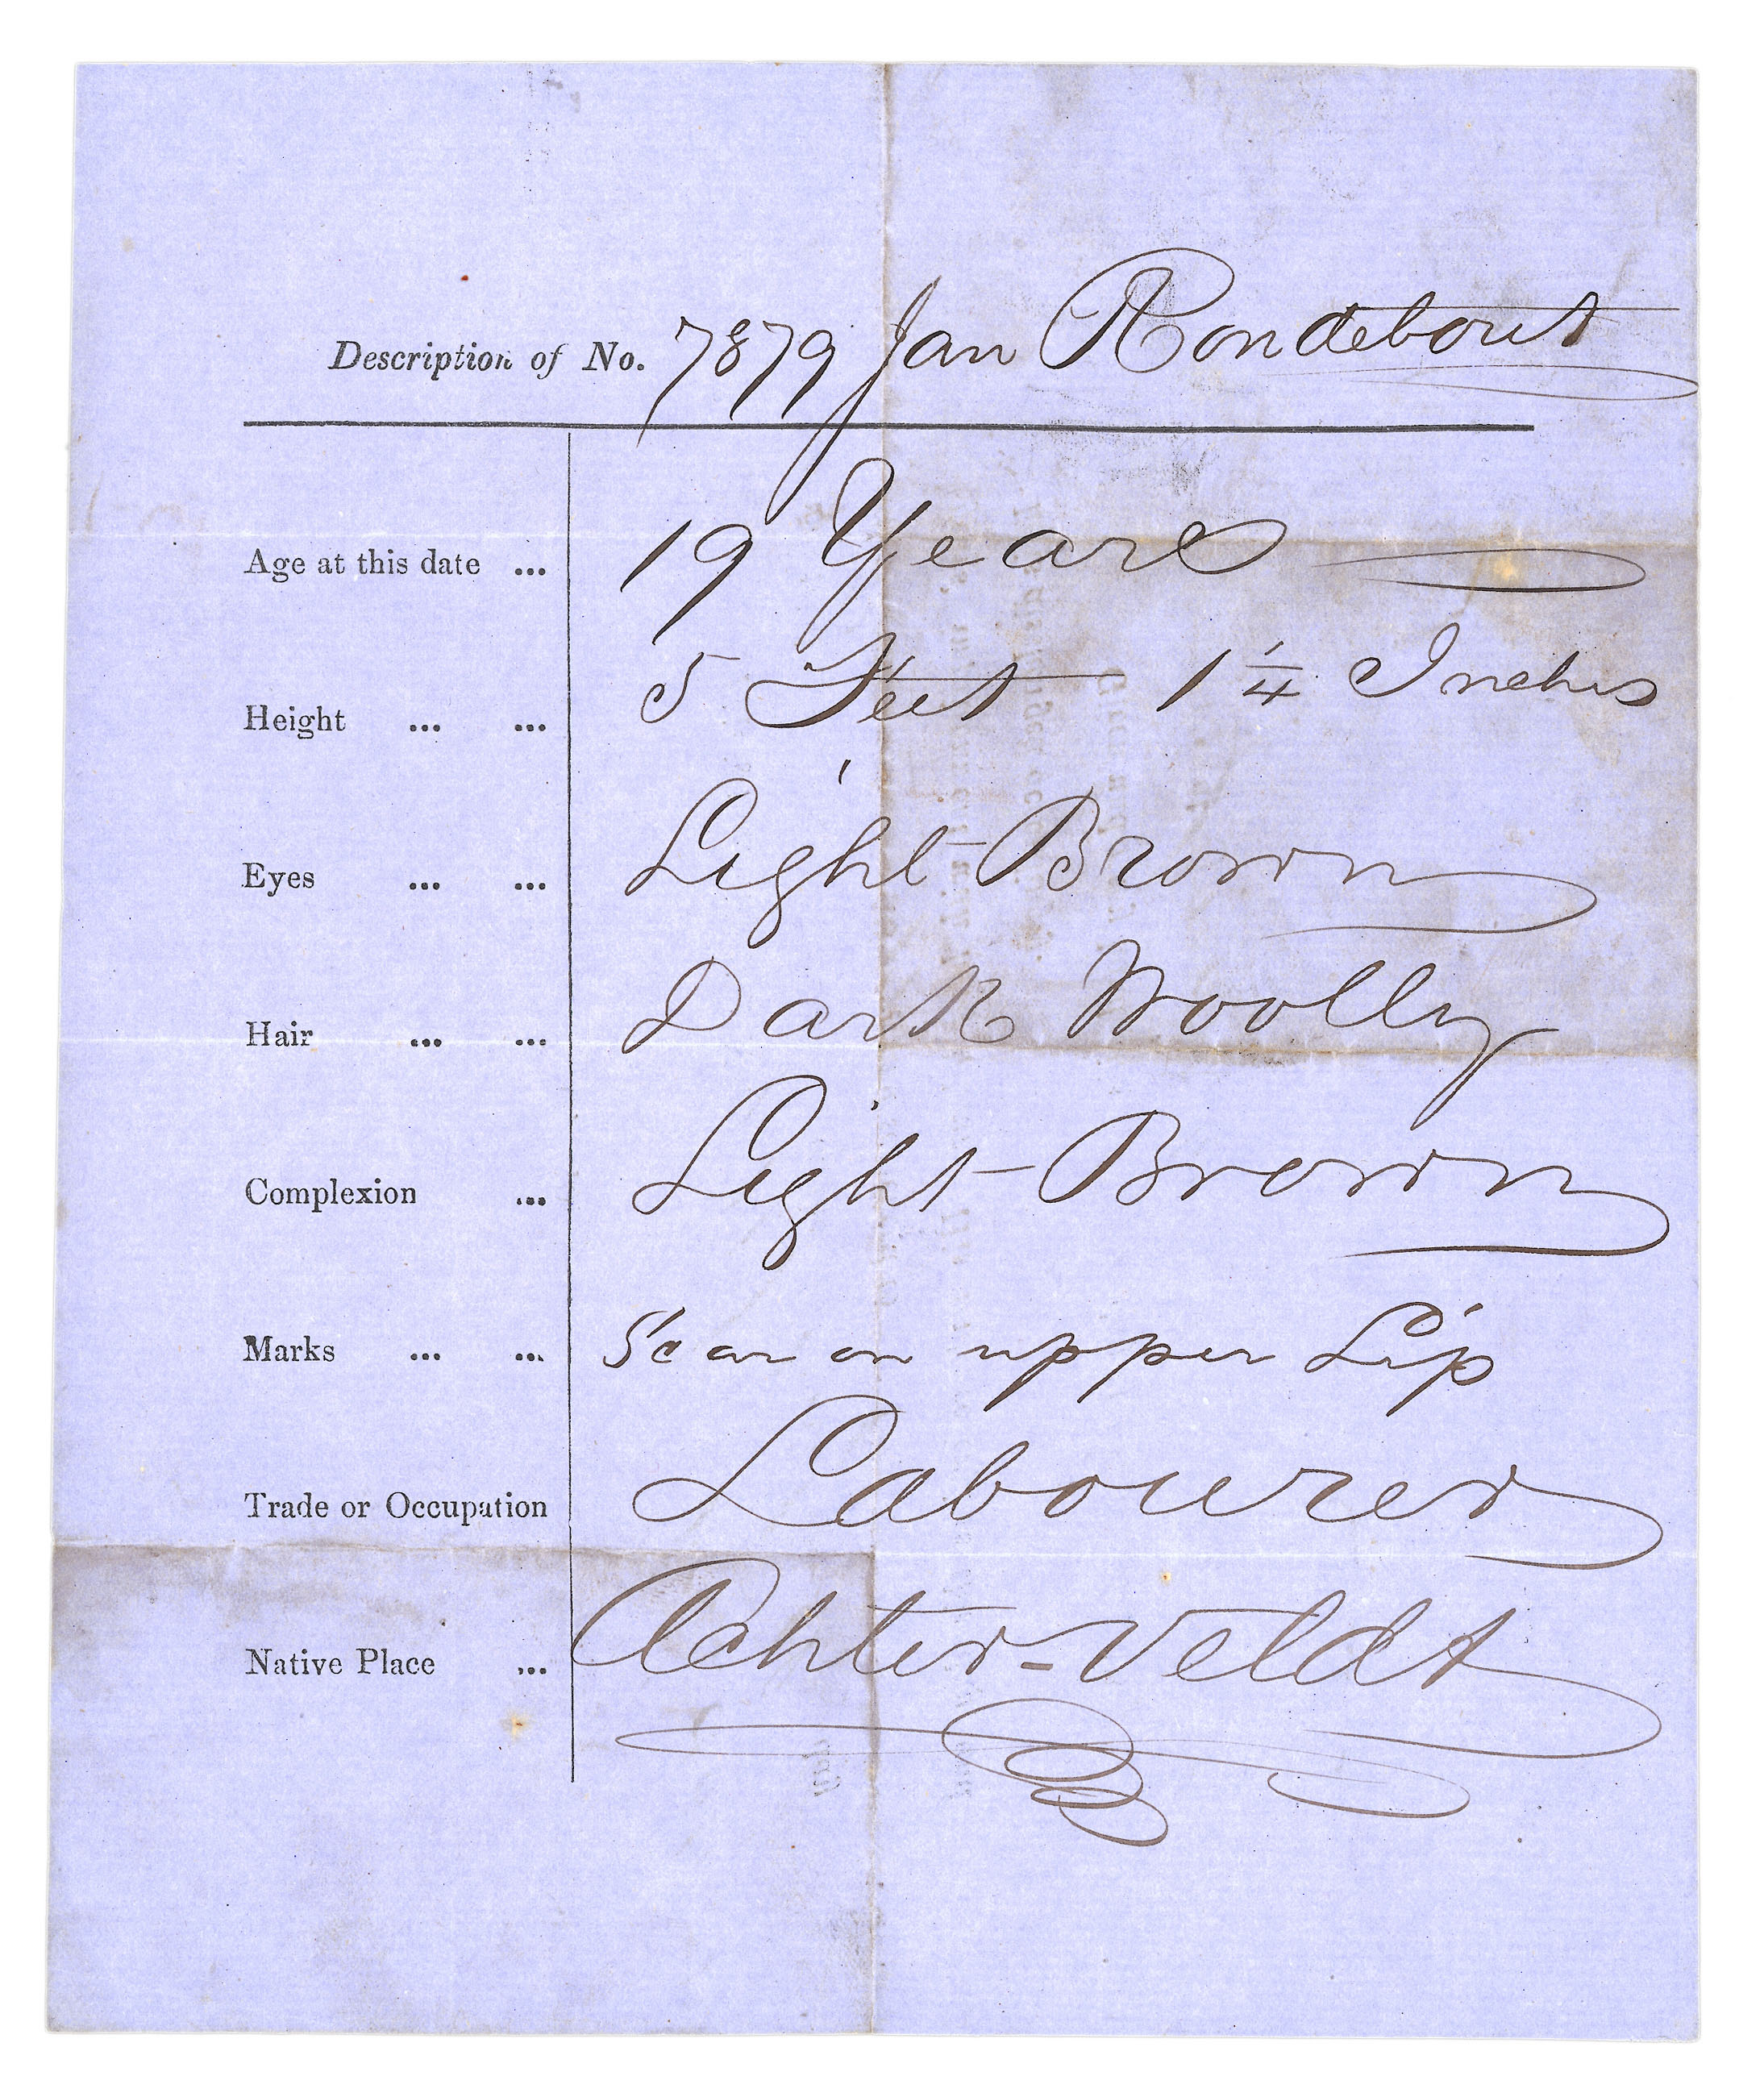 Description of No. 7879 Jan Rondebout
Age at this date ... 19 Years
Height ... ... 5 Feet 1 1/4 Inches
Eyes ... ... Light Brown
Hair ... ... Dark Woolly
Complexion ... Light Brown
Marks ... ... Scar on upper Lip
Trade or Occupation Labourer
Native Place ... Achter-Veldt